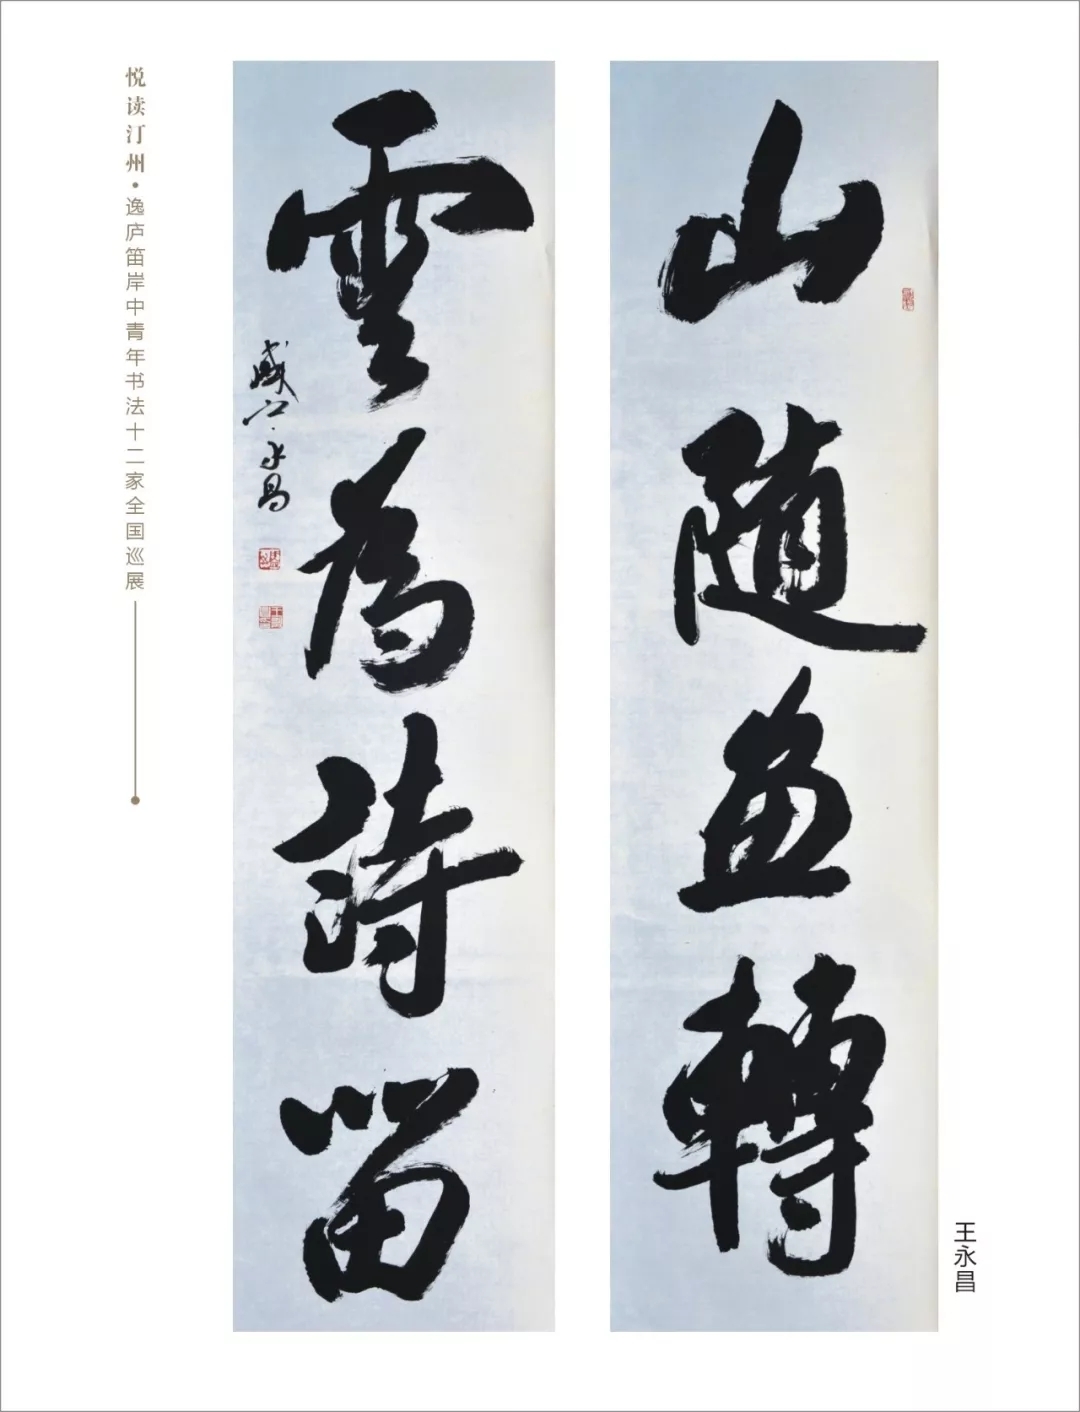 悦读汀州·逸庐笛岸中青年书法十二家全国巡展
山随畫轉
雲為詩留
永昌
王永昌